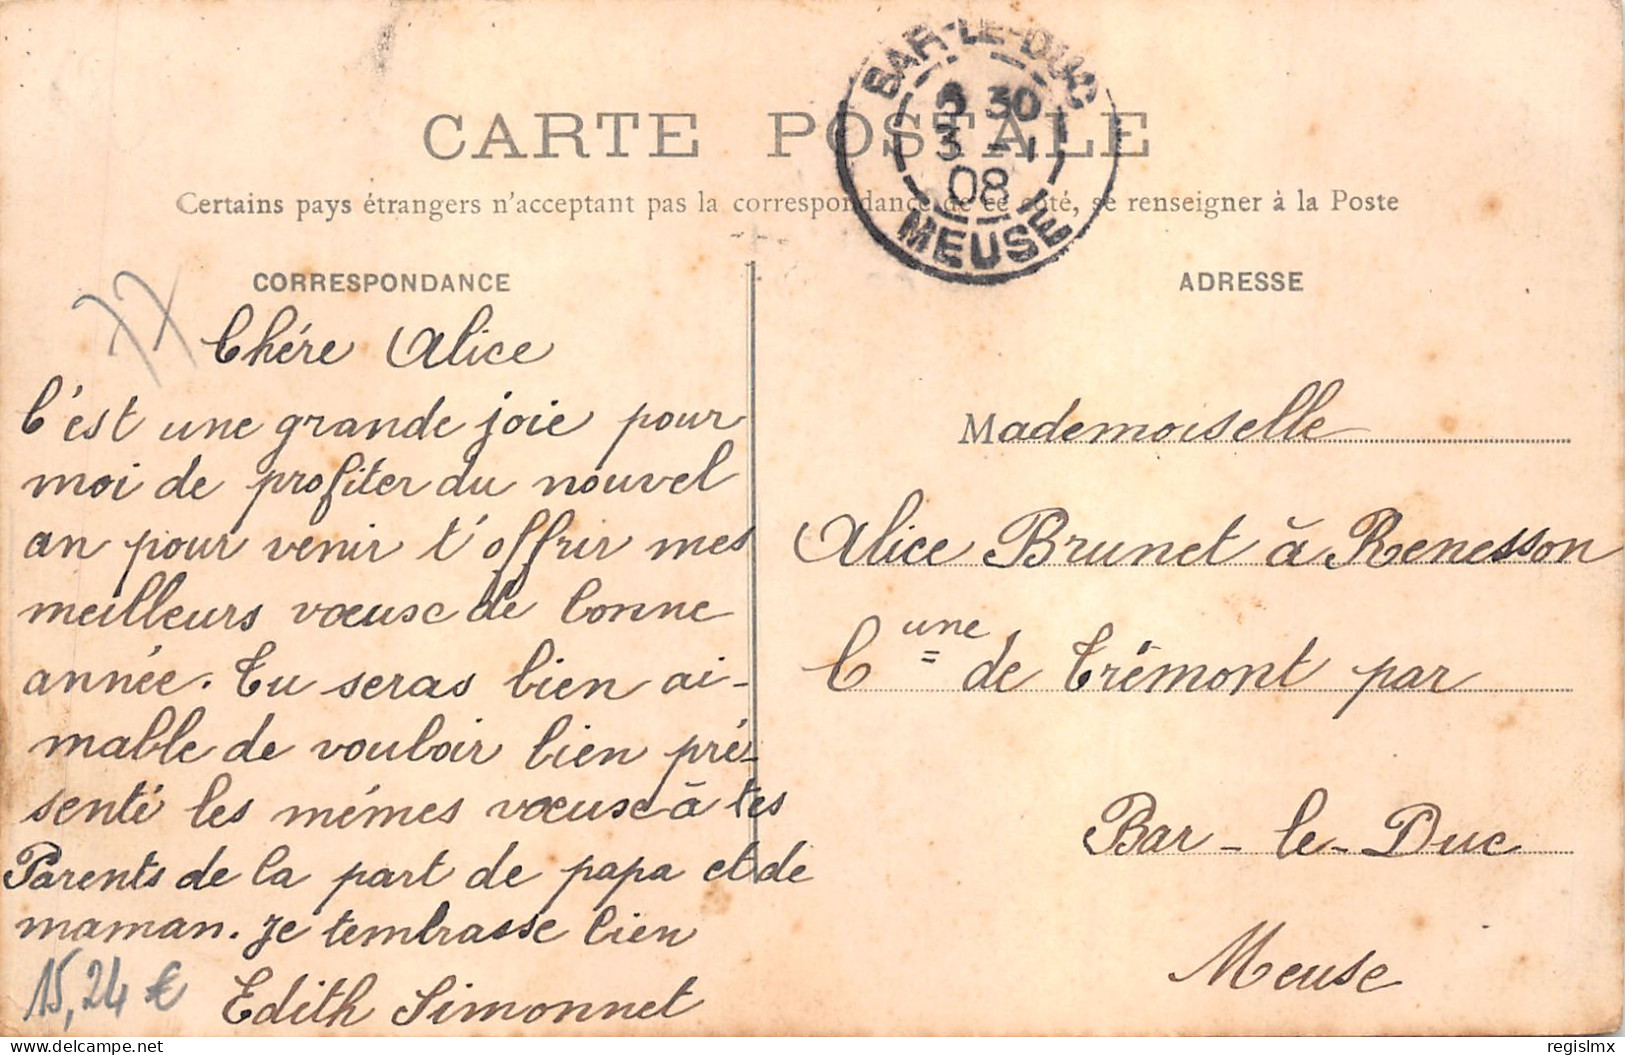 CARTE POSTALE
Certains pays étrangers n'acceptant pas la correspondance de ce côté, se renseigner à la Poste
BAR-LE-DUC
30
3 - 1
08
MEUSE
CORRESPONDANCE
77
Chére Alice
C'est une grande joie pour
moi de profiter du nouvel
an pour venir t'offrir mes
meilleurs vœux de bonne
année. Tu seras bien ai-
mable de vouloir bien pré-
senté les mémes vœux à tes
Parents de la part de papa et de
maman. Je tembrasse bien
Edith Simonnet
15,24 €
ADRESSE
Mademoiselle
Alice Brunet à Renesson
Cune de Trémont par
Bar-le-Duc
Meuse
delcampe.net
regislmx